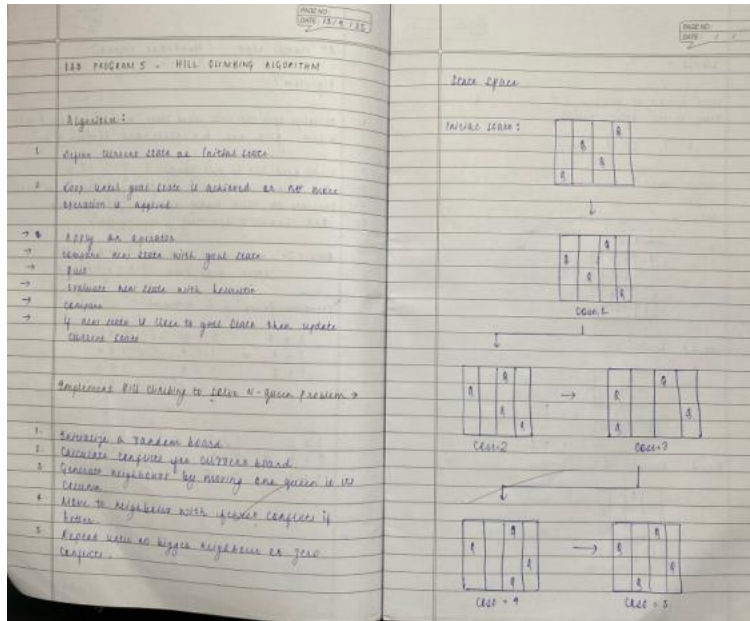 PAGE NO:
DATE:
LAB PROGRAM 5 - HILL CLIMBING ALGORITHM
Algorithm:
1 Define current state as initial state
2 Loop until goal state is achieved or no more
operation is applied
→ Apply an operator
→ compare new state with goal state
→ quit
→ Evaluate new state with heuristic
→ compare
→ if new state is close to goal state then update
current state
Implement Hill climbing to solve N-queen problem →
1. Initialize a random board.
2. Calculate conflicts for current board.
3 Generate neighbours by moving one queen in
column
4. Move to neighbour with conflicts if
better.
5. Repeat until no bigger neighbour or zero
conflicts.
PAGE NO:
DATE: / /
State Space
Initial state:
Q
Q
Q
Q
↓
Q
Q
Q
Q
↓
Q
Q
Q
Q
→
Q
Q
Q
Q
↓
Q
Q
Q
Q
→
Q
Q
Q
Q
Case = 4
Case = 5